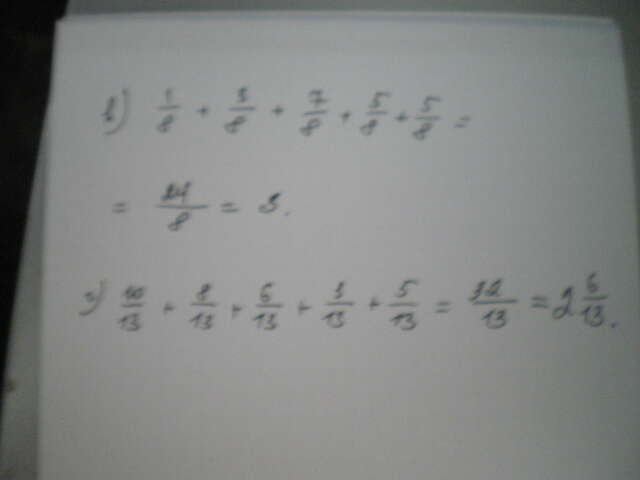 1/8 + 3/8 + 7/8 + 5/8 + 5/8 =
= 24/8 = 3.
10/13 + 8/13 + 6/13 + 3/13 + 5/13 = 32/13 = 2 6/13.